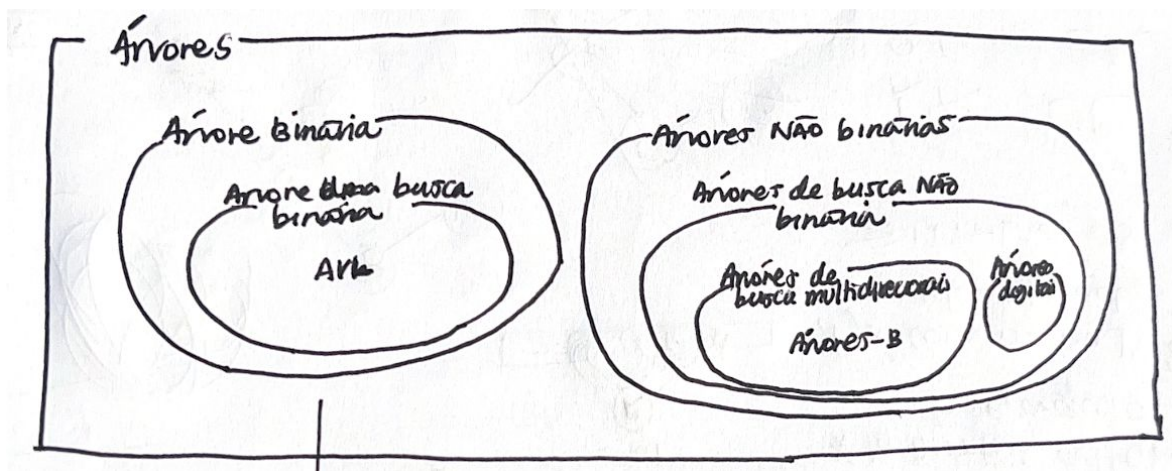 Árvores
Árvore Binária
Árvore busca
binária
AVL
Árvores NÃO binárias
Árvores de busca NÃO
binária
Árvores de
busca multidirecionais
Árvores-B
Árvores
digitais